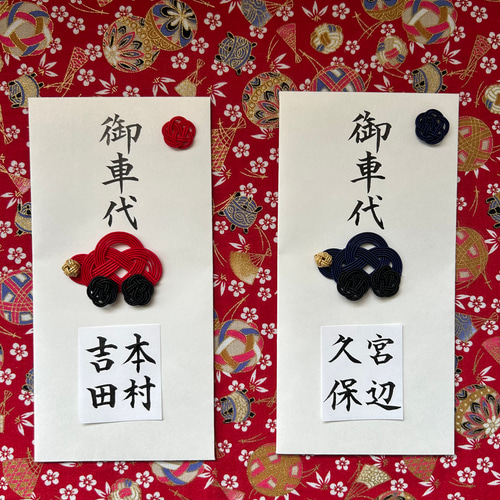 御車代
本村
吉田
御車代
宮辺
久保